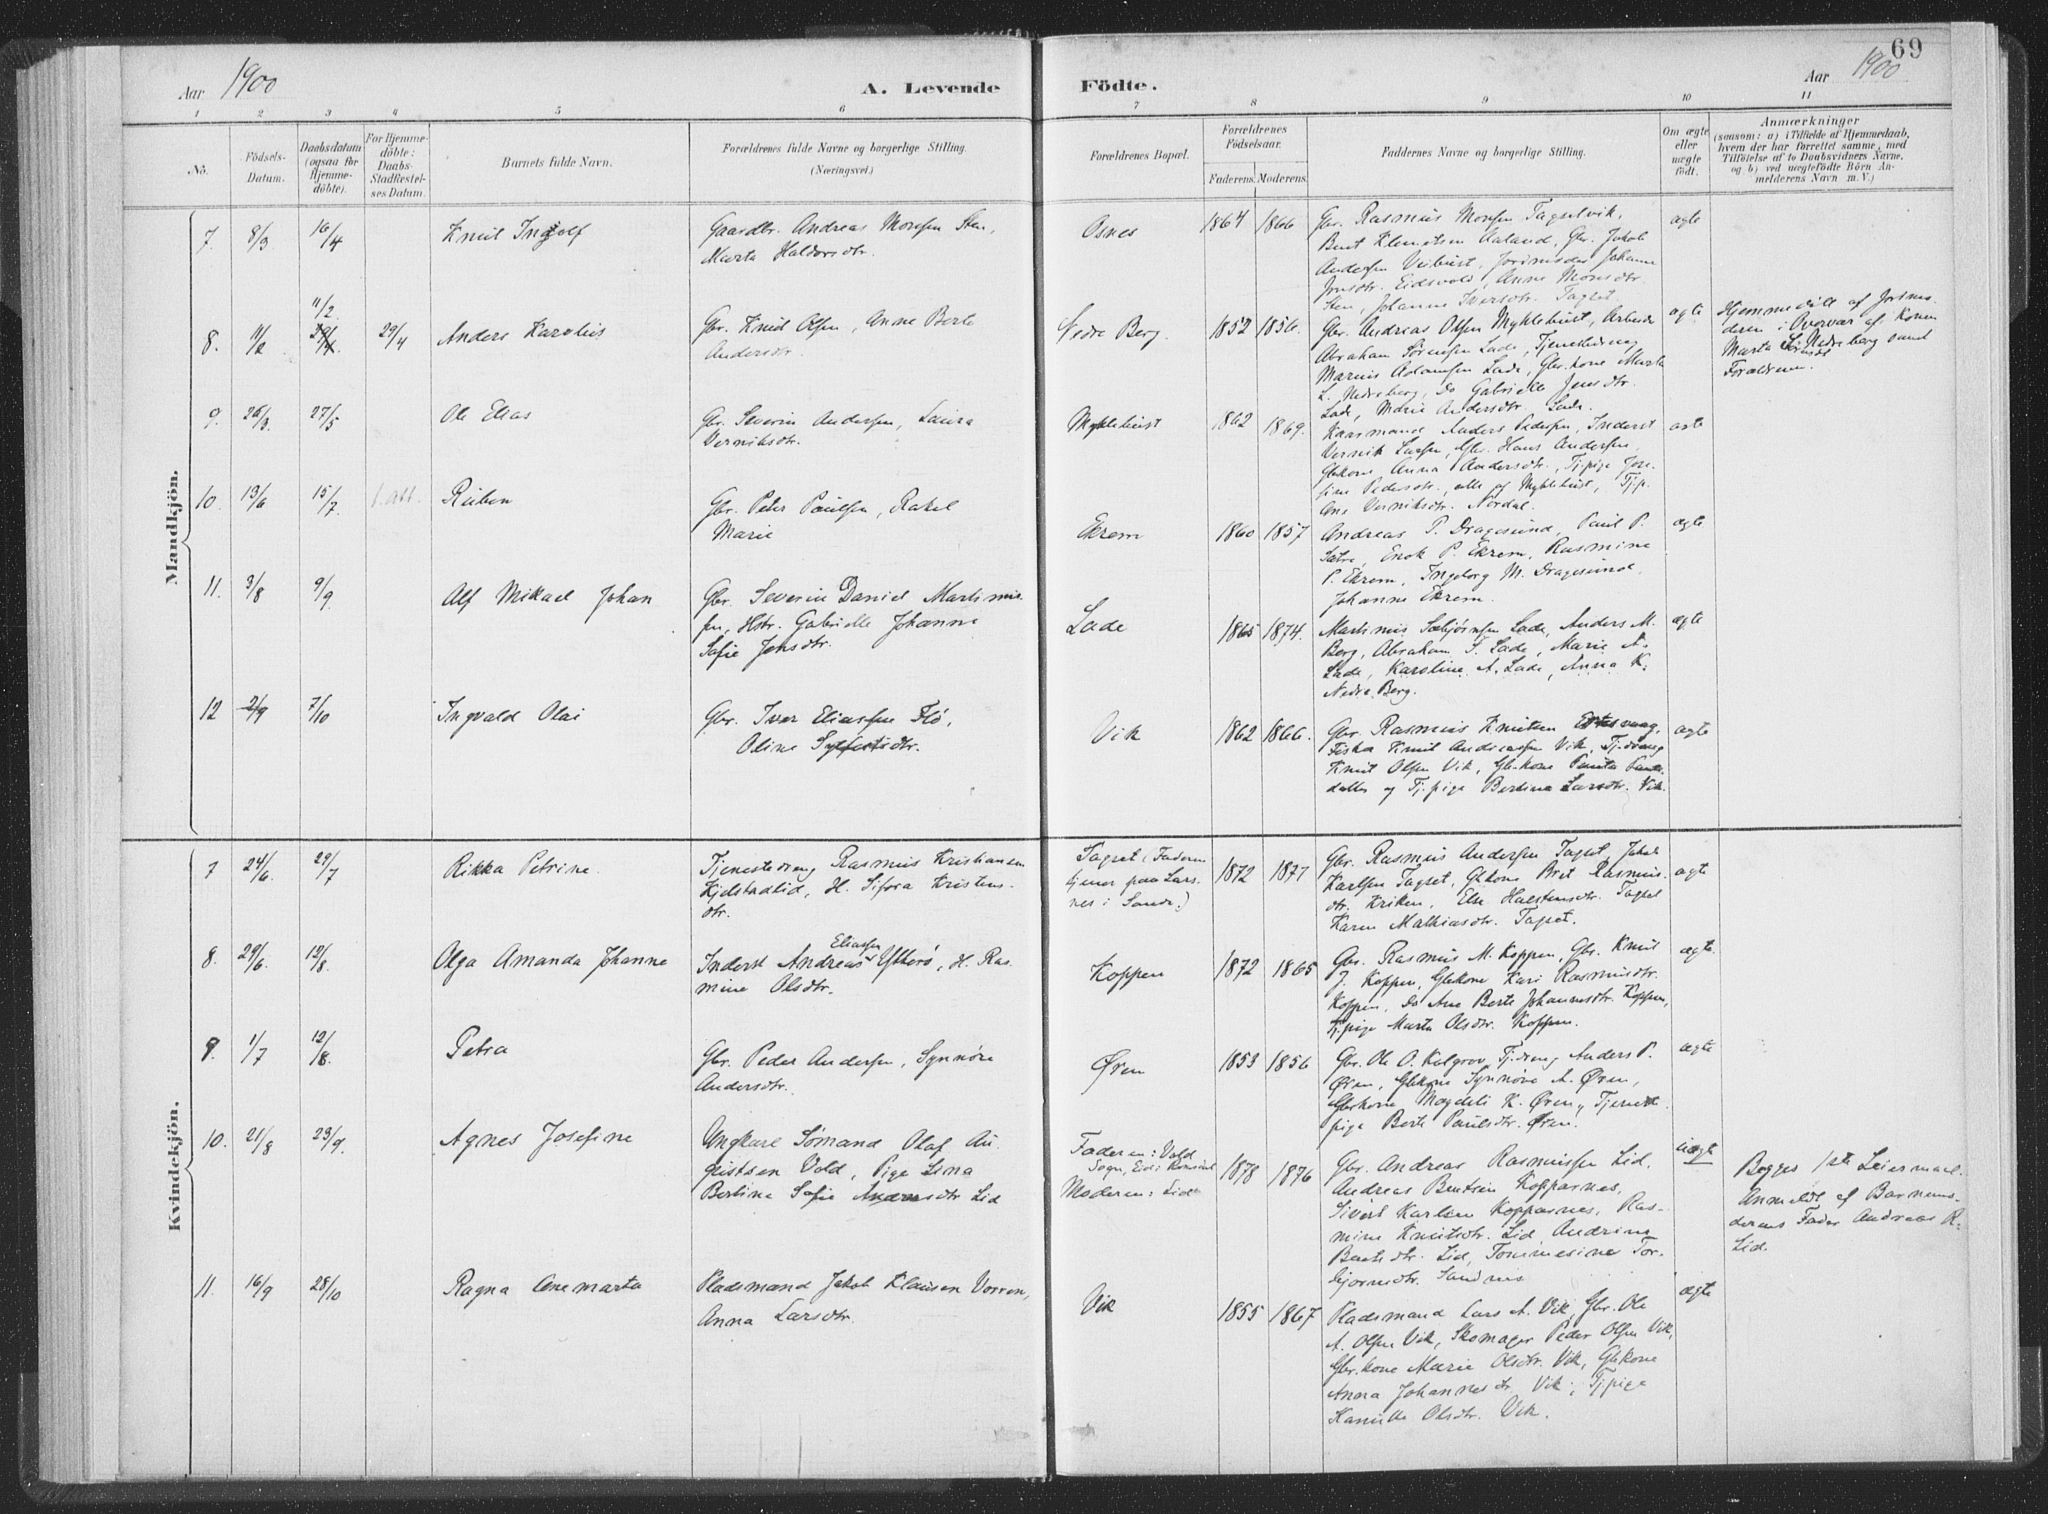 69
Aar 1900 A. Levende Födte. Aar 1900
1 2 3 4 5 6 7 8 9 10 11
No. Födsels-Datum. Daabsdatum (ogsaa for Hjemme-döbte). For Hjemme-döbte: Daabs-Stadfæstel-ses Datum. Barnets fulde Navn. Forældrenes fulde Navne og borgerlige Stilling. (Næringsvei.) Forældrenes Bopæl. Forældrenes Födselsaar. Faderens. Moderens. Faddernes Navne og borgerlige Stilling. Om ægte eller uægte födt. Anmærkninger (saasom: a) i Tilfælde af Hjemmedaab, hvem der har forrettet samme, med Tilföielse af to Daabsvidners Navne, og b) ved uægtefödte Börn An-melderens Navn m. V.)
Mandkjön.
7. 8/3 16/4 Knut Ingolf Gaardbr. Andreas Monsen Sten, Osnes 1864 1866 Gbr. Rasmus Monsen Tagselvik, ægte
Marta Haldorsdtr. Bent Klemetsen Aaland, Gbr. Jakob
Andersen Veibust, Jordmoder Johanne
Jonsdtr. Eidsvold, Anne Monsdtr.
Sten, Johanne Iversdtr. Tagset
11/2
8. 11/2 29/4 29/4 Anders Karolius Gbr. Knut Olsen, Anne Berte Nedre Berg. 1852 1856. Gbr. Andreas Olsen Myklebust, Arbeider ægte Hjemmedöbt af Jordmo-
Andersdtr. Abraham Sørensen Lade, Tjenestedreng deren i Overvær af Konen
Marius Adamsen Lade, Gbr.kone Marta Marta Nedreberg samt
L. Nedreberg, do Gabrielle Jensdtr. Forældrene.
Lade, Marie Andersdtr. Lade.
9. 25/3 27/5 Ole Elias Gbr. Severin Andersen, Laura Myklebust 1862 1869. Kaarmand Anders Pedersen, Inderst ægte
Verniksdtr. Vernik Larsen, Gbr. Hans Andersen,
Gbkone Anna Andersdtr., Tj.pige Jose-
fine Pedersdtr., alle af Myklebust, Tj.p.
Ane Verniksdtr. Nordal.
10. 13/6 15/7 Ruben Gbr. Peter Paulsen, Rakel Ekrem 1860 1857 Andreas P. Dragesund, Paul P. ægte
Marie Sætre, Enok P. Ekrem, Rasmine
P. Ekrem, Ingeborg M. Dragesund,
Johanne Ekrem.
11. 3/8 9/9 Alf Mikael Johan Gbr. Severin Daniel Martinus- Lade 1865 1874. Martinus Sæbjørnsen Lade, Anders M. ægte
sen, Hstr. Gabrielle Johanne Berg, Abraham S. Lade, Marie A.
Sofie Jensdtr. Lade, Karoline A. Lade, Anna K.
Nedre Berg.
12 2/9 7/10 Ingvald Olai Gbr. Iver Eliassen Flø, Vik 1862 1866. Gbr. Rasmus Knutsen ægte
Oline Sylfestsdtr. Fisker Knut Andreassen Vik, Tj.dreng
Knut Olsen Vik, Gbrkone
og Tj.pige Bertina Larsdtr. Vik.
Kvindekjön.
7 24/6 29/7 Rikka Petrine. Tjenestedreng Rasmus Kristiansen Tagset (Faderen 1872 1877 Gbr. Rasmus Andersen Tagset, Jakob ægte
Kjelstadlid, H. Sifora Kristens- tjener paa Lars- Karlsen Tagset, Gbkone Brit Rasmus-
dtr. nes i Sande.) dtr. Kriken, Else Halstensdtr. Tagset
Karen Mathiasdtr. Tagset.
8. 29/6. 12/8. Olga Amanda Johanne Inderst Andreas Eliassen Ytterø, H. Ras- Koppen 1872 1865 Gbr. Rasmus M. Koppen, Gbr. Knut ægte.
mine Olsdtr. J. Koppen, Gbkone Kari Rasmusdtr.
Koppen, do Ane Berte Johannesdtr. Koppen,
Tj.pige Marta Olsdtr. Koppen.
9. 1/7 12/8. Petra Gbr. Peder Andersen, Synnøve Øren 1853 1856 Gbr. Ole O. Kilgrov, Tj.dreng Anders P. ægte
Andersdtr. Øren, Gbkone Synnøve A. Øren,
Gbrkone Magdeli K. Øren, Tjeneste-
pige Berte Paulsdtr. Øren.
10. 21/8 23/9. Agnes Josefine Ungkarl Sømand Olaf Au- Faderen: Vold 1878 1876 Gbr. Andreas Rasmussen Lid, uægte Begges 1ste Leiermaal.
gustsen Vold, Pige Lina Sogn, Moderen: Lid Andreas Bentsen Kopparnes, Anmeldt af Barnemo-
Bertine Sofie Andersdtr Lid Sivert Karlsen Kopparnes, Ras- derens Fader Andreas R.
mine Knutsdtr. Lid, Andrine Lid.
Bentsdtr. Lid, Tommesine Tor-
bjørnsdtr. Sandnes
11. 16/9 28/10 Ragna Anemarta Pladsmand Jakob Klausen Vorren, Vik 1855 1867 Pladsmand Lars A. Vik, Gbr. Ole ægte
Anna Larsdtr. A. Olsen Vik, Skomager Peder Olsen Vik,
Gbr.kone Marie Olsdtr. Vik, Gbkone
Anna Johannesdtr. Vik, Tj.pige
Kamilla Olsdtr. Vik.